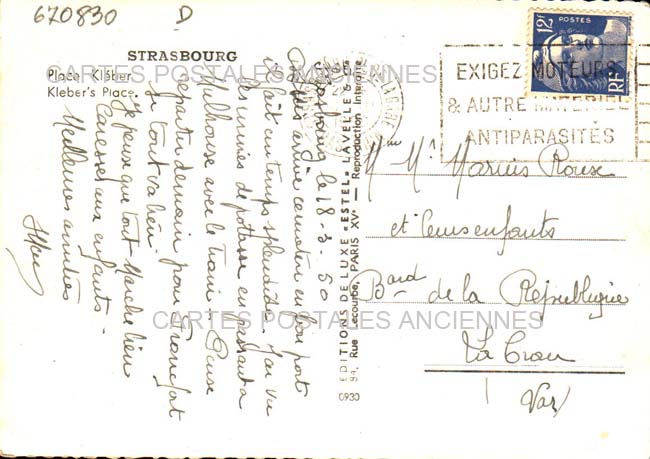 670830 D
STRASBOURG
Place Kléber
Kleber's Place.
CARTES POSTALES ANCIENNES
Strasbourg le 18-3-50
arrivé ce matin en bon port
il fait un temps splendide. J'ai vu
les mines de potasse en passant a
Mulhouse avec le train. Pense
repartir demain pour Francfort
Je tout va bien.
Je peux que tout marche bien
Caresses aux enfants.
Meilleures amitiés
EDITIONS DE LUXE «ESTEL» LAVELLE &
94, Rue Lecourbe, PARIS XVe — Reproduction Interdite
0930
12F POSTES
RF
EXIGEZ MOTEURS
& AUTRE MATERIEL
ANTIPARASITÉS
Mme Mr Marius Roux
et leurs enfants
Bard de la République
La Crau
Var
CARTES POSTALES ANCIENNES